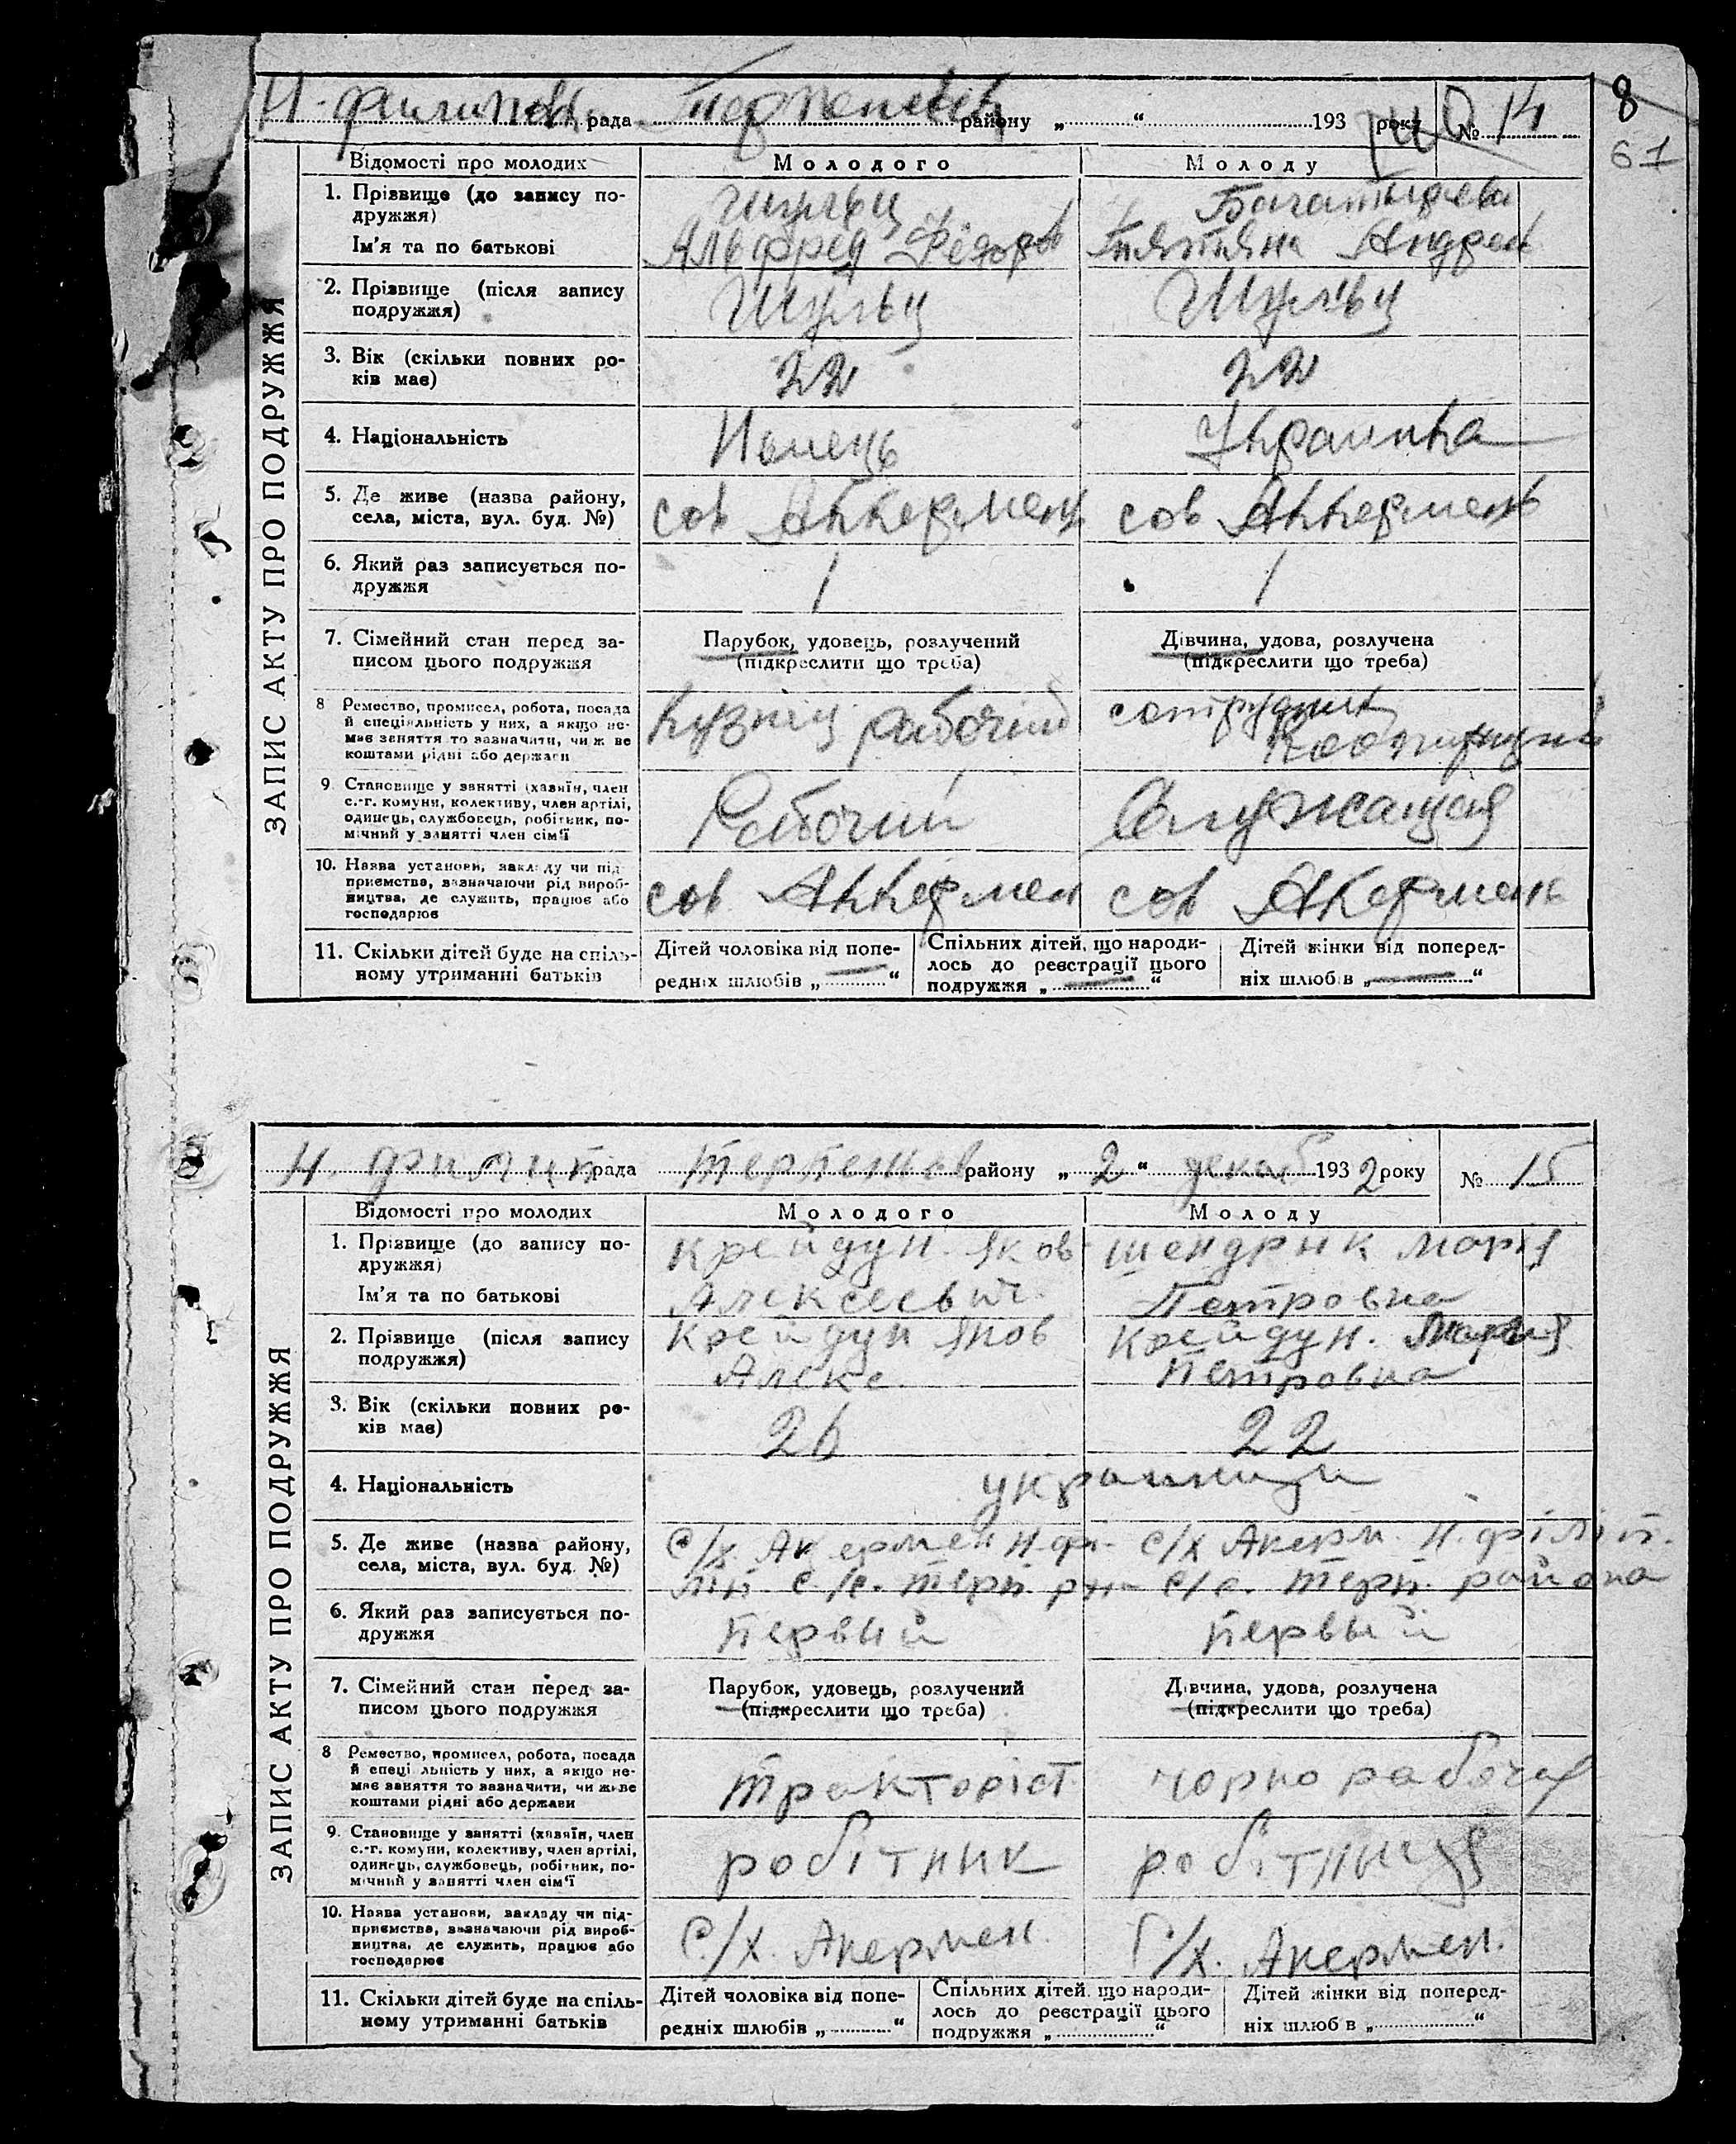 Н. филипов рада Терпеневск району „ “ 193 року № 14
8
61
ЗАПИС АКТУ ПРО ПОДРУЖЖЯ
Відомості про молодих Молодого Молоду
1. Прізвище (до запису по-
дружжя) Шульц
Ім'я та по батькові Альфред Фёдоров Татьяна Андреев
2. Прізвище (після запису
подружжя) Шульц Шульц
3. Вік (скільки повних ро-
ків має) 22 22
4. Національність Немець Украинка
5. Де живе (назва району,
села, міста, вул. буд. №) сов Аккермень сов Аккермень
6. Який раз записується по-
дружжя 1 1
7. Сімейний стан перед за-
писом цього подружжя
Парубок, удовець, розлучений
(підкреслити що треба)
Дівчина, удова, розлучена
(підкреслити що треба)
8 Ремество, промисел, робота, посада
й спеціяльність у них, а якщо не-
має заняття то зазначити, чи живе
коштами рідні або держави
рабочий
9. Становище у занятті (хазяїн, член
с.-г. комуни, колективу, член артілі,
одинець, службовець, робітник, по-
мічний у занятті член сім'ї
Рабочий Служащая
10. Назва установи, закладу чи під-
приємства, зазначаючи рід вироб-
ництва, де служить, працює або
господарює
сов Аккермен сов Акермень
11. Скільки дітей буде на спіль-
ному утриманні батьків
Дітей чоловіка від попе-
редніх шлюбів „ — “
Спільних дітей, що народи-
лось до реєстрації цього
подружжя „ — “
Дітей жінки від поперед-
ніх шлюбів „ — “
Н. филип рада Терпенов району „ 2 “ декаб 1932 року № 15
ЗАПИС АКТУ ПРО ПОДРУЖЖЯ
Відомості про молодих Молодого Молоду
1. Прізвище (до запису по-
дружжя) Крейдун. Яков Шендрик Мария
Ім'я та по батькові Алексеевич. Петровна
2. Прізвище (після запису Крейдун Яков Крейдун. Мария
подружжя) Алекс. Петровна
3. Вік (скільки повних ро-
ків має) 26 22
4. Національність украинци
5. Де живе (назва району, С/х. Акермен Н. фі- С/х Акерм. Н. філіп.
села, міста, вул. буд. №) ліп. с/с. Терп. р-на С/с. Терп. района
6. Який раз записується по-
дружжя Первый Первый
7. Сімейний стан перед за-
писом цього подружжя
Парубок, удовець, розлучений
(підкреслити що треба)
Дівчина, удова, розлучена
(підкреслити що треба)
8 Ремество, промисел, робота, посада
й спеціяльність у них, а якщо не-
має заняття то зазначити, чи живе
коштами рідні або держави
тракторіст чорно рабочая
9. Становище у занятті (хазяїн, член
с.-г. комуни, колективу, член артілі,
одинець, службовець, робітник, по-
мічний у занятті член сім'ї
робітник робітныця
10. Назва установи, закладу чи під-
приємства, зазначаючи рід вироб-
ництва, де служить, працює або
господарює
С/х. Акермен. С/х. Акермен.
11. Скільки дітей буде на спіль-
ному утриманні батьків
Дітей чоловіка від попе-
редніх шлюбів „ “
Спільних дітей, що народи-
лось до реєстрації цього
подружжя „ “
Дітей жінки від поперед-
ніх шлюбів „ “